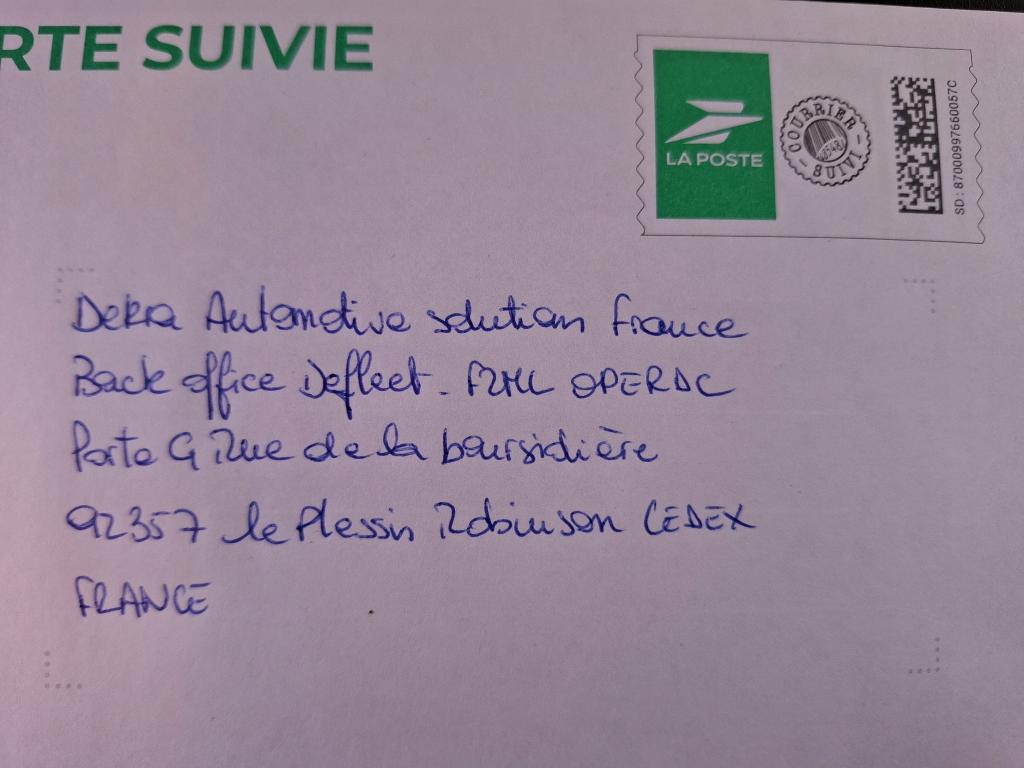 RTE SUIVIE
LA POSTE
COURRIER SUIVI
SD : 87000997660057C
Dekra Automotive solution France
Back office Defleet - FZML OPERDC
Porte G Rue de la boursidière
92357 le Plessis Robinson CEDEX
FRANCE